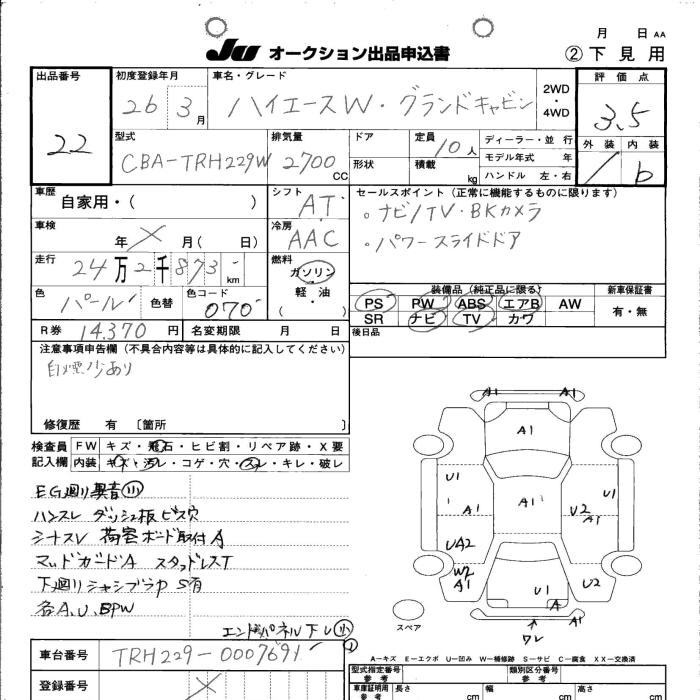 月 日 AA
JU オークション出品申込書 ② 下見用
出品番号 初度登録年月 車名・グレード 2WD・4WD 評価点
22 26 3月 ハイエースW・グランドキャビン 3.5
型式 排気量 ドア 定員 10人 ディーラー・並行 外装 内装
CBA-TRH229W 2700CC 形状 積載 kg モデル年式 年 / b
ハンドル 左・右
車歴 自家用・( ) シフト AT セールスポイント(正常に機能するものに限ります)
車検 年 X 月( 日) 冷房 AAC 。ナビ/TV・BKカメラ
走行 24万2千873km 燃料 ガソリン 軽・油 ( ) 。パワースライドドア
色 パール 色替 色コード 070 装備品(純正品に限る) 新車保証書
PS PW ABS エアB AW 有・無
R券 14,370円 名変期限 月 日 SR ナビ TV カワ
注意事項申告欄(不具合内容等は具体的に記入してください) 後日品
修復歴 有 〔箇所 〕
検査員 FW キズ・飛石・ヒビ割・リペア跡・X要
記入欄 内装 キズ・汚レ・コゲ・穴・スレ・キレ・破レ
EG廻り異音小
ハンスレ ダッシュ板ビス穴
シナスレ 荷室ボード取付A
マッドガードA スタッドレスT
下廻りシャシブラP S有
各A.U.BPW
エンドパネル下レ小
A1 A1
A1
U1 A1 U1
U2 A1
UA2
W2 A1 U1 U2
A
A1 A1
ワレ
スペア
A－キズ E－エクボ U－凹み W－補修跡 S－サビ C－腐食 XX－交換済
車台番号 TRH229-0007691
登録番号 X
型式指定番号 類別区分番号
参考 参考
車庫証明用 参考 長さ cm 幅 cm 高さ cm